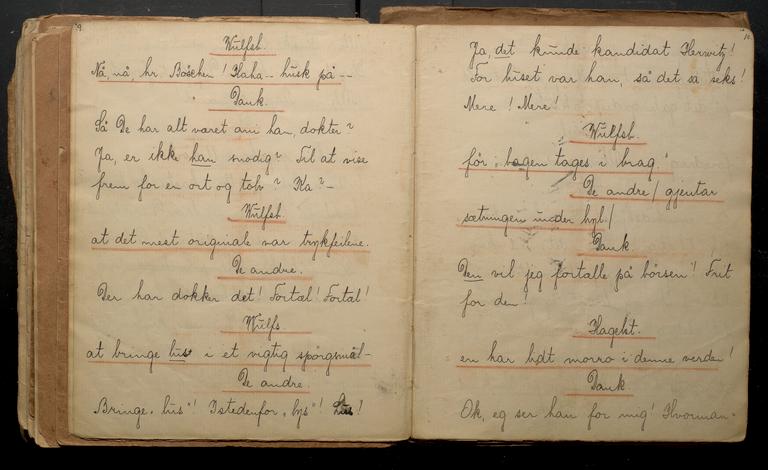 9.
Wulfsb.
Nå, nå, hr. Böschen! Haha-- husk på --
Dank.
Så De har alt været ani han, dokter?
Ja, er ikke han snodig? Til at vise
frem for en ort og tolv? Ka? -
Wulfsb.
at det mest originale var trykfeilene.
De andre.
Der har dokker det! Fortæl! Fortæl!
Wulfs.
at bringe lus i et vigtig spørgsmål-
De andre.
Bringe „lus"! Istedenfor „lys"! Lus!
10.
Ja, det kunde kandidat Herwitz!
For huset var han, så det sa seks!
Mere! Mere!
Wulfsb.
før bægen tages i brag"
De andre / gjentar
sætningen under hyl. /
Dank
Den vil jeg fortælle på børsen! Frit
for den!
Hagebt.
en har hdt morro i denne verden!
Dank
Ok, eg ser han for mig! Hvorman-